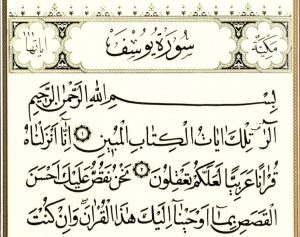 مكية سورة يوسف آياتها ١١١
بِسْمِ اللهِ الرَّحْمٰنِ الرَّحِيمِ
الٓرٰ تِلْكَ اٰيَاتُ الْكِتَابِ الْمُبِينِ ﴿١﴾ اِنَّٓا اَنْزَلْنَاهُ
قُرْاٰنًا عَرَبِيًّا لَعَلَّكُمْ تَعْقِلُونَ ﴿٢﴾ نَحْنُ نَقُصُّ عَلَيْكَ اَحْسَنَ
الْقَصَصِ بِمَٓا اَوْحَيْنَٓا اِلَيْكَ هٰذَا الْقُرْاٰنَ وَاِنْ كُنْتَ